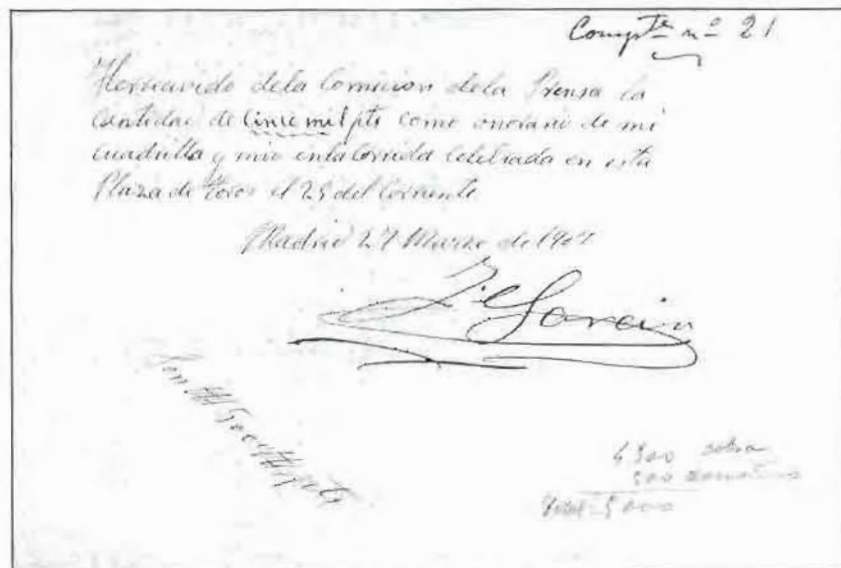 Compte nº 21
He recivido dela Comision dela Prensa la
cantidad de Cinco mil pts como onorario de mi
cuadrilla y mio enla Corrida Celebrada en esta
Plaza de Toros el 25 del Corriente
Madrid 27 Marzo de 1907
García
Son # 5000 # pts
4500 cobra
500 donativo
Total = 5000